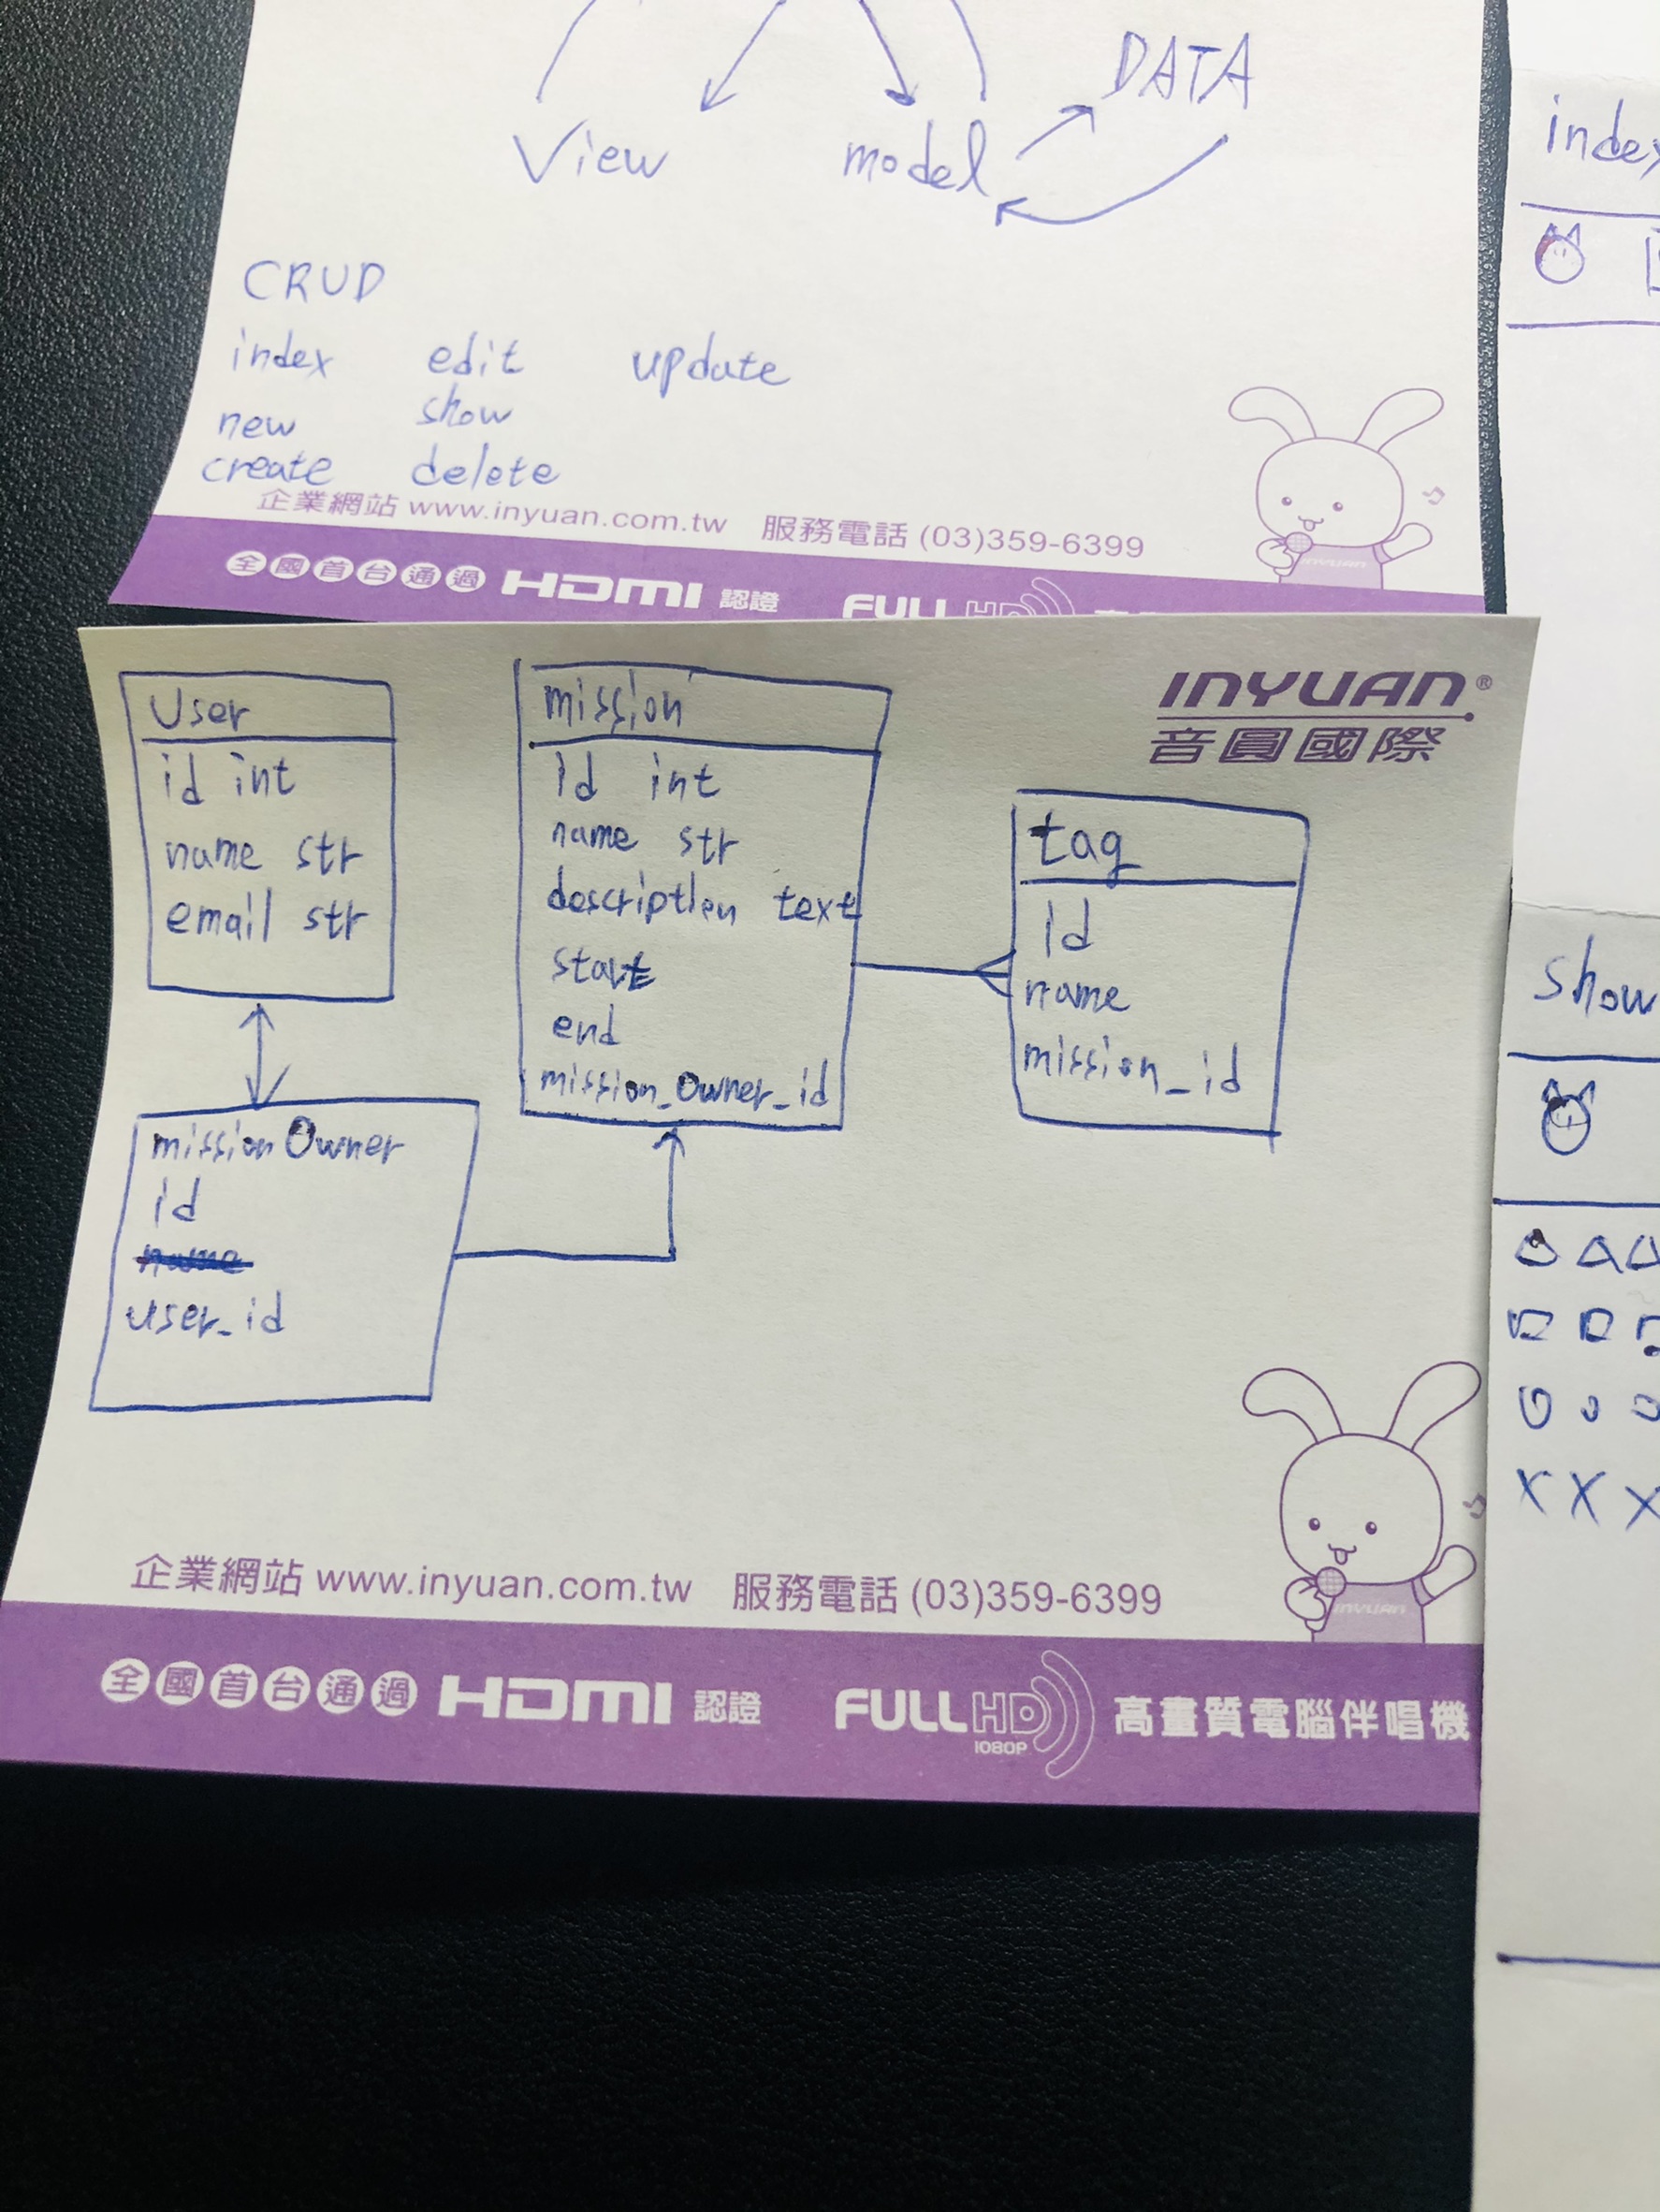 DATA
View model
CRUD
index edit update
new show
create delete
企業網站 www.inyuan.com.tw 服務電話 (03)359-6399
INYUAN
全國首台通過 HDMI 認證 FULL HD
INYUAN®
音圓國際
User
id int
name str
email str
mission
id int
name str
description text
start
end
mission_Owner_id
tag
id
name
mission_id
missionOwner
id
name
user_id
企業網站 www.inyuan.com.tw 服務電話 (03)359-6399
INYUAN
全國首台通過 HDMI 認證 FULL HD 1080P 高畫質電腦伴唱機
index
show
X X X